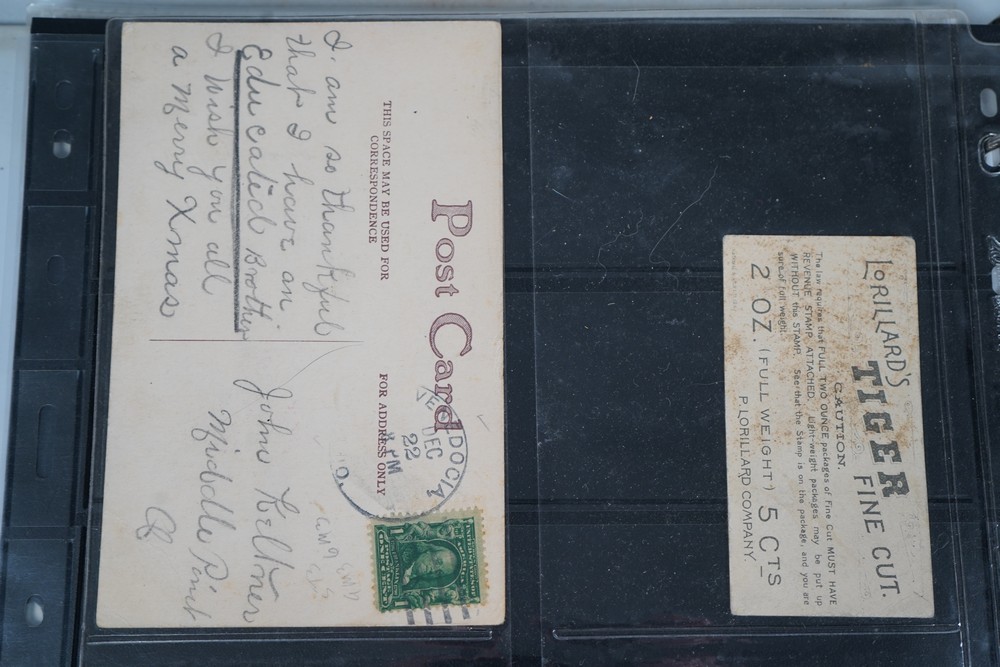 Post Card
THIS SPACE MAY BE USED FOR
CORRESPONDENCE
FOR ADDRESS ONLY
I am so thankful
that I have an
Educatid Brother
I Wish you all
a Merry Xmas
DEC
22
PM
John Keltner
Middle Point
O
LORILLARD'S
TIGER
FINE CUT.
CAUTION.
The law requires that FULL TWO OUNCE packages of Fine Cut MUST HAVE
REVENUE STAMP ATTACHED. Light-weight packages may be put up
WITHOUT this STAMP. See that the Stamp is on the package, and you are
sure of full weight.
2 OZ. (FULL WEIGHT) 5 CTS
P. LORILLARD COMPANY.